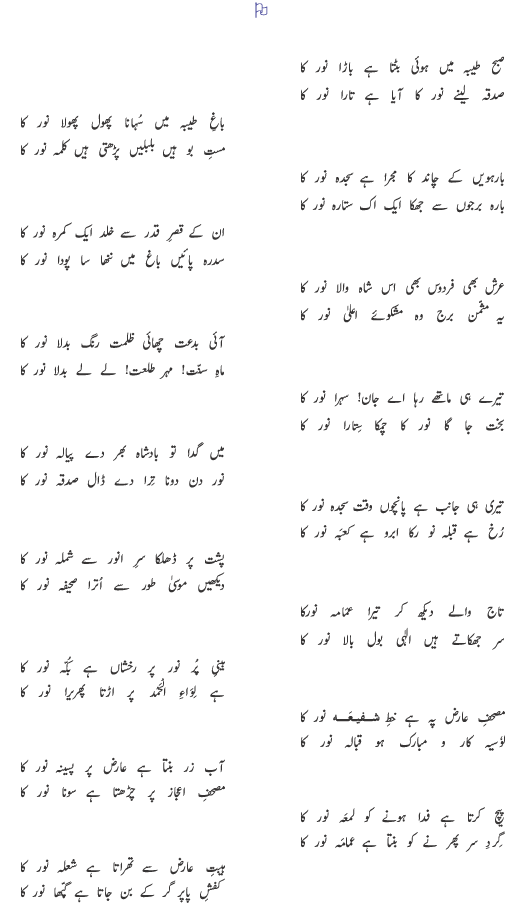 صبح طیبہ میں ہوئی بٹتا ہے باڑا نور کا
صدقہ لینے نور کا آیا ہے تارا نور کا
باغِ طیبہ میں سُہانا پھول پھولا نور کا
مستِ بو ہیں بلبلیں پڑھتی ہیں کلمہ نور کا
بارہویں کے چاند کا مجرا ہے سجدہ نور کا
بارہ برجوں سے جھکا ایک اک ستارہ نور کا
ان کے قصرِ قدر سے خلد ایک کمرہ نور کا
سدرہ پائیں باغ میں ننھا سا پودا نور کا
عرش بھی فردوس بھی اس شاہ والا نور کا
یہ مثمّن برج وہ مشکوئے اعلیٰ نور کا
آئی بدعت چھائی ظلمت رنگ بدلا نور کا
ماہِ سنّت! مہر طلعت! لے لے بدلا نور کا
تیرے ہی ماتھے رہا اے جان! سہرا نور کا
بخت جا گا نور کا چمکا سِتارا نور کا
میں گدا تو بادشاہ بھر دے پیالہ نور کا
نور دن دونا تِرا دے ڈال صدقہ نور کا
تیری ہی جانب ہے پانچوں وقت سجدہ نور کا
رُخ ہے قبلہ نو رکا ابرو ہے کعبَہ نور کا
پشت پر ڈھلکا سرِ انور سے شملہ نور کا
دیکھیں موسیٰ طور سے اُترا صحیفہ نور کا
تاج والے دیکھ کر تیرا عمامہ نورکا
سر جھکاتے ہیں الٰہی بول بالا نور کا
بینیِ پُر نور پر رخشاں ہے بُکّہ نور کا
ہے لِوَاءِ الْحَمْد پر اڑتا پھریرا نور کا
مصحفِ عارض پہ ہے خطِ شفیعَہ نور کا
لوٗسیہ کار و مبارک ہو قبالہ نور کا
آب زر بنتا ہے عارض پر پسینہ نور کا
مصحفِ اعجاز پر چڑھتا ہے سونا نور کا
پیچ کرتا ہے فدا ہونے کو لمعَہ نور کا
گِردِ سر پھر نے کو بنتا ہے عمامَہ نور کا
ہیبتِ عارض سے تھراتا ہے شعلہ نور کا
کفشِ پاپر گر کے بن جاتا ہے گپّھا نور کا